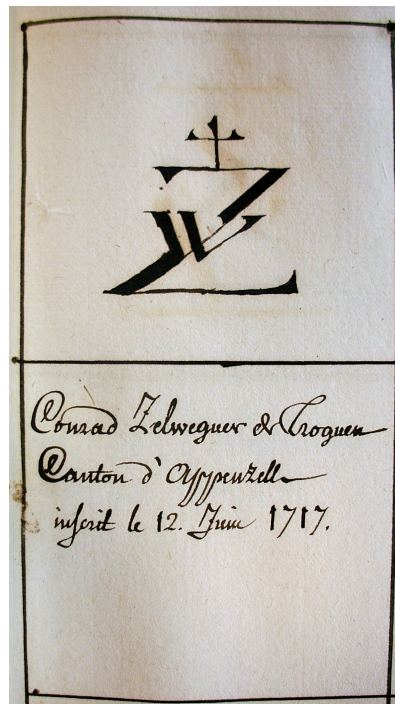 ZW
Conrad Zelweguer de Troguen
Canton d'Appenzell
inscrit le 12. Juin 1717.